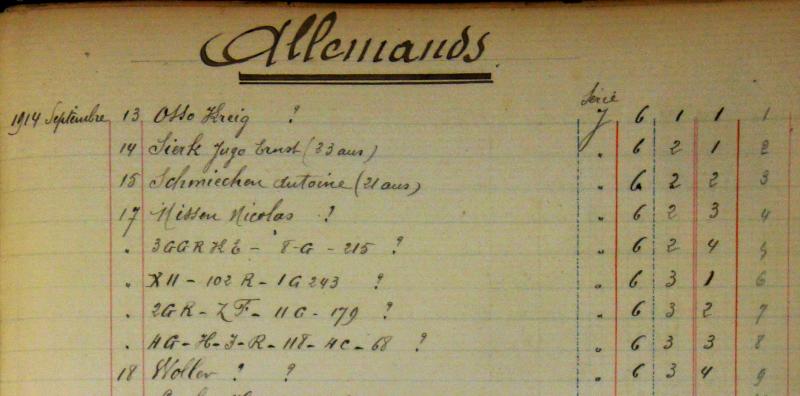 Allemands
Série
1914 Septembre 13 Otto Kreig ? J 6 1 1 1
14 Sierk Jugo Ernst (33 ans) " 6 2 1 2
15 Schmiechen Antoine (21 ans) " 6 2 2 3
17 Nissen Nicolas ? " 6 2 3 4
" 3GGRKE - 8-G - 215 ? " 6 2 4 5
" XII - 102 R - 1G 243 ? " 6 3 1 6
" 2GR - Z F - 11G - 179 ? " 6 3 2 7
" 4G - H - J - R - 118 - 4C - 68 ? " 6 3 3 8
18 Woller ? ? " 6 3 4 9